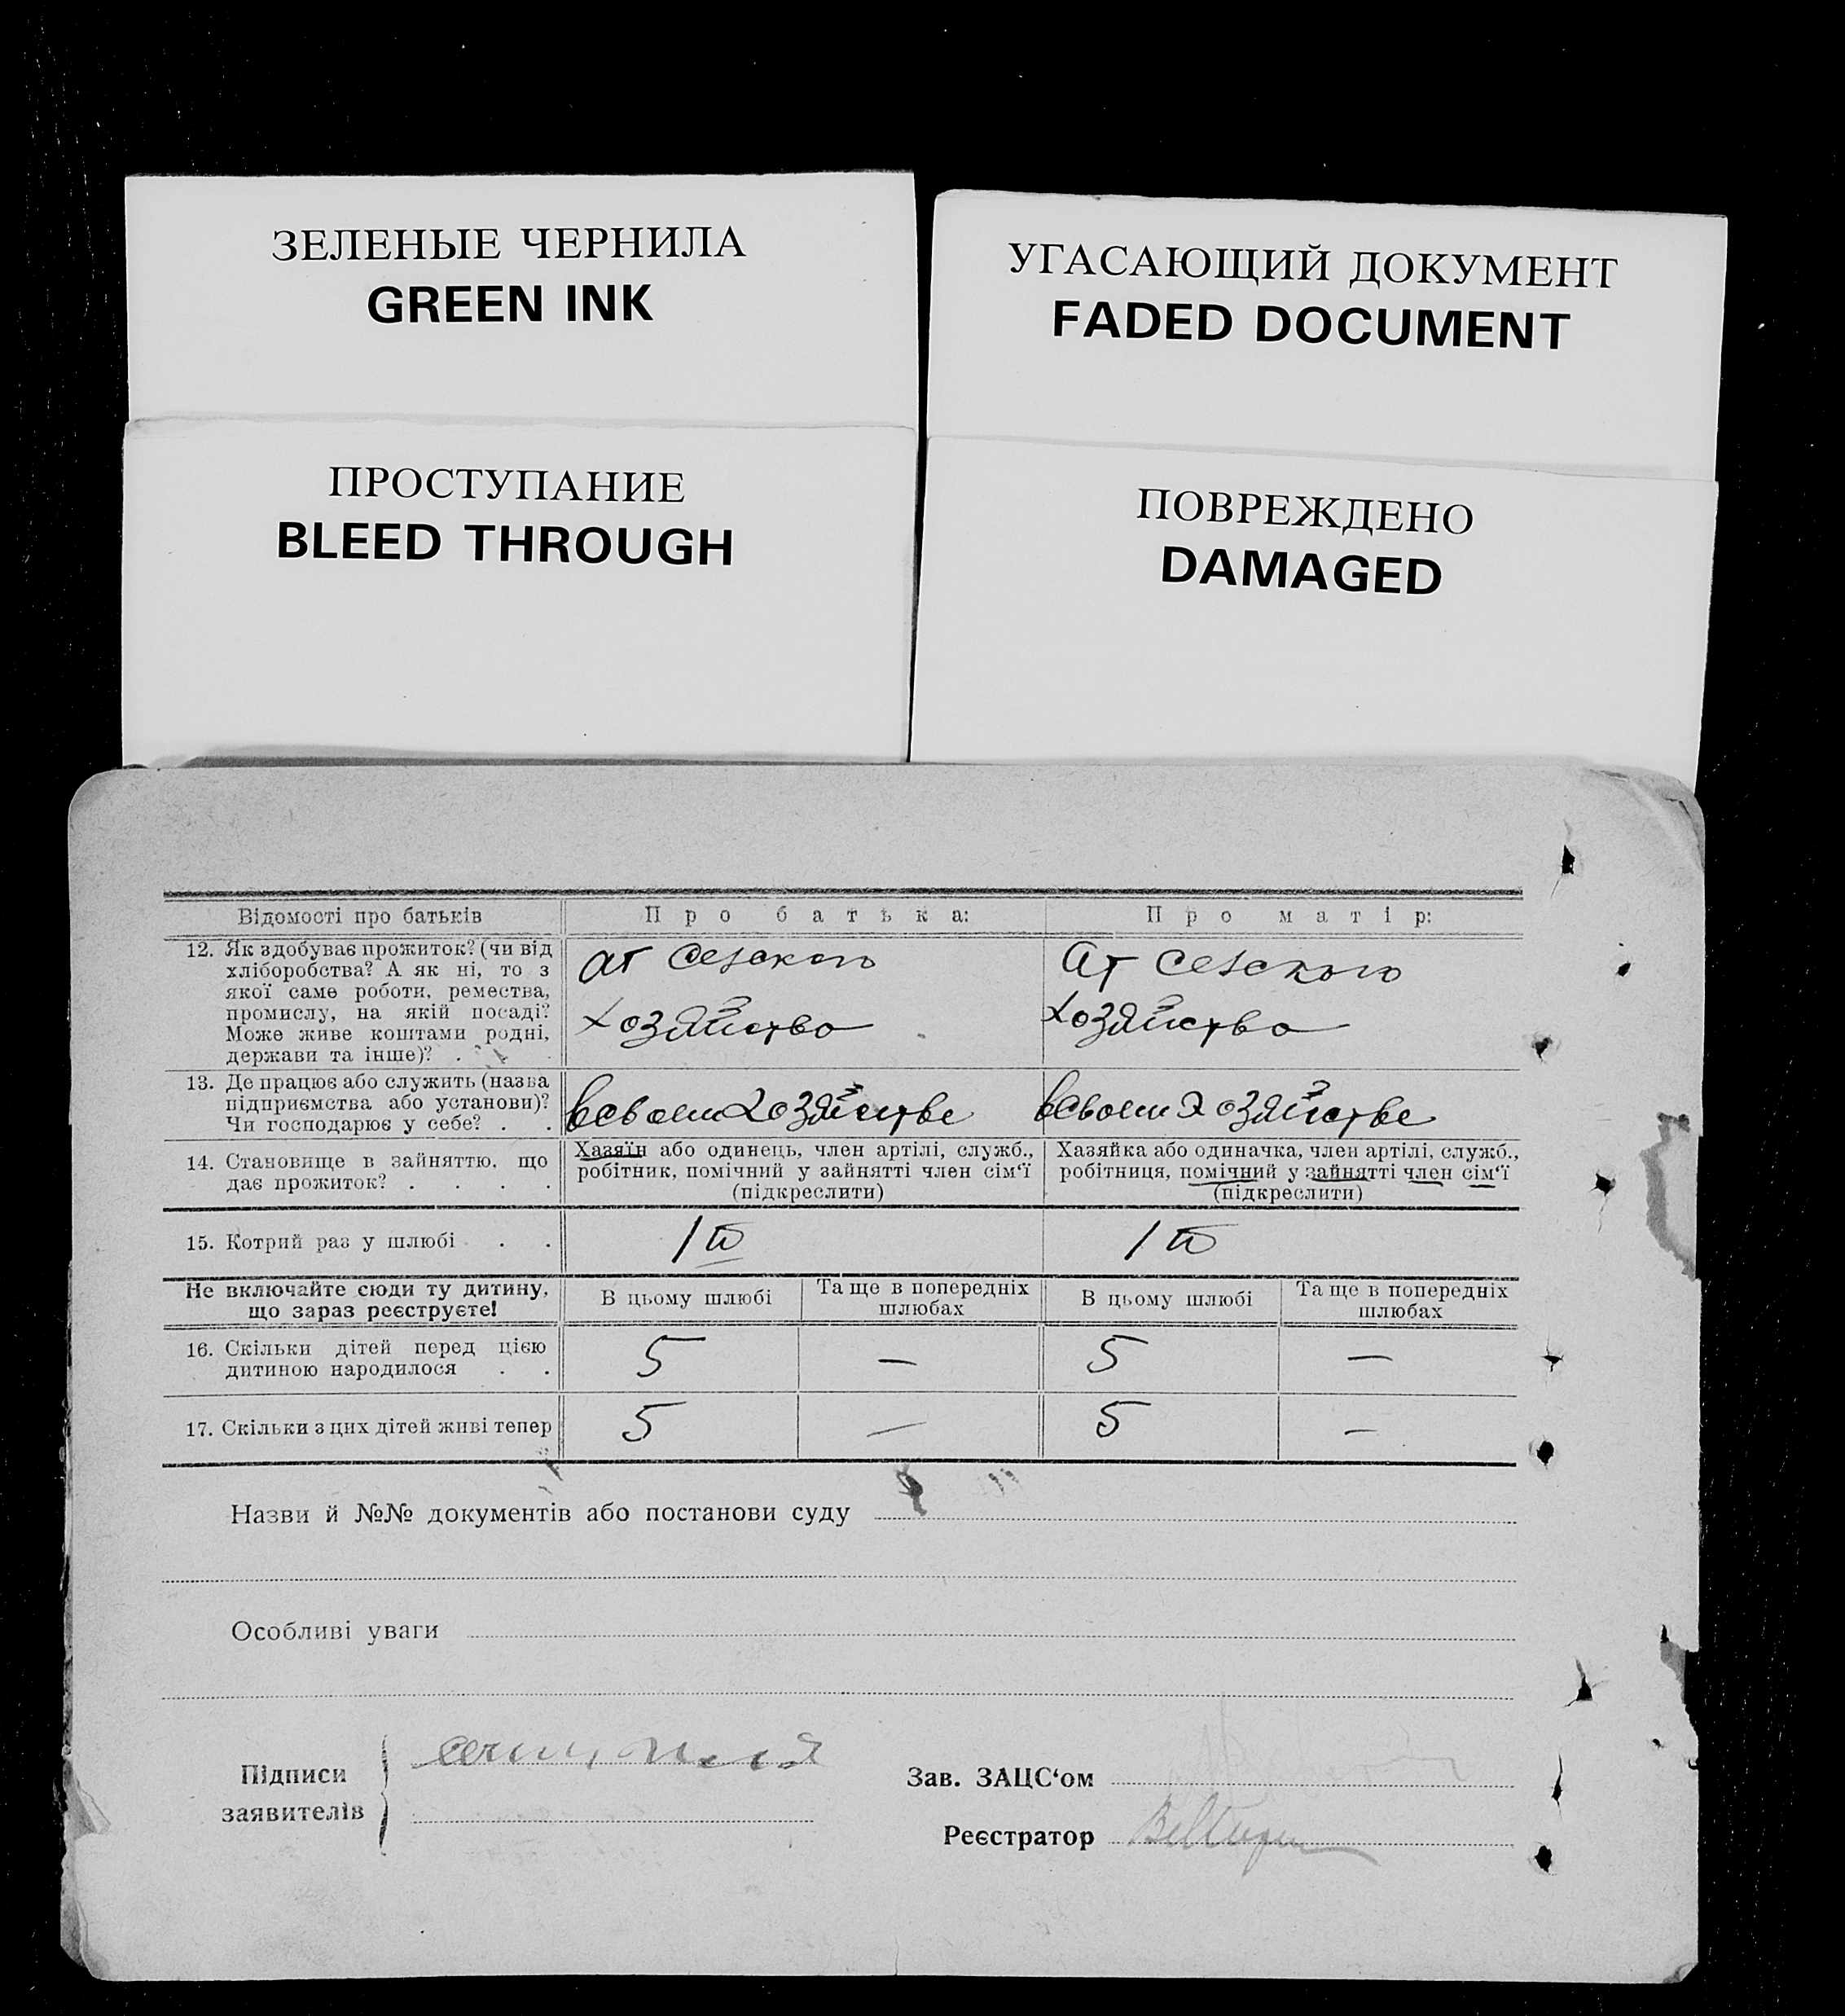 ЗЕЛЕНЫЕ ЧЕРНИЛА
GREEN INK
УГАСАЮЩИЙ ДОКУМЕНТ
FADED DOCUMENT
ПРОСТУПАНИЕ
BLEED THROUGH
ПОВРЕЖДЕНО
DAMAGED
Відомості про батьків
Про батька:
Про матір:
12. Як здобуває прожиток? (чи від
хліборобства? А як ні, то з
якої саме роботи, ремества,
промислу, на якій посаді?
Може живе коштами родні,
держави та інше)? .
ат Сезского
хозяйство
ат Сезского
хозяйство
13. Де працює або служить (назва
підприємства або установи)?
Чи господарює у себе? . .
всвоем хозяйстве
всвоем хозяйстве
14. Становище в зайняттю, що
дає прожиток? . . . .
Хазяїн або одинець, член артілі, служб.,
робітник, помічний у зайнятті член сім‘ї
(підкреслити)
Хазяйка або одиначка, член артілі, служб.,
робітниця, помічний у зайнятті член сім‘ї
(підкреслити)
15. Котрий раз у шлюбі . .
1й
1й
Не включайте сюди ту дитину,
що зараз реєструєте!
В цьому шлюбі
Та ще в попередніх
шлюбах
В цьому шлюбі
Та ще в попередніх
шлюбах
16. Скільки дітей перед цією
дитиною народилося . .
5
—
5
—
17. Скільки з цих дітей живі тепер
5
—
5
—
Назви й №№ документів або постанови суду
Особливі уваги
Підписи
заявителів
Зав. ЗАЦС‘ом
Реєстратор